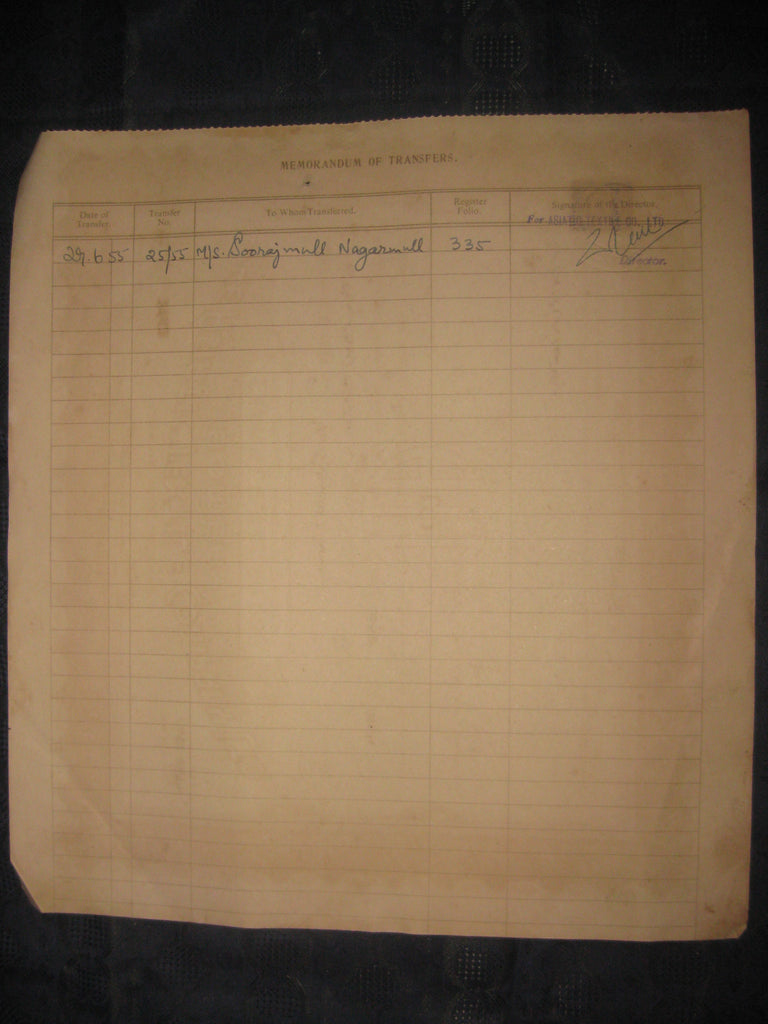 MEMORANDUM OF TRANSFERS.
Date of Transfer. Transfer No. To Whom Transferred. Register Folio. Signature of the Director.
For CO., LTD
6 55 25/55 M/S. Soorajmull Nagarmull 335
Director.